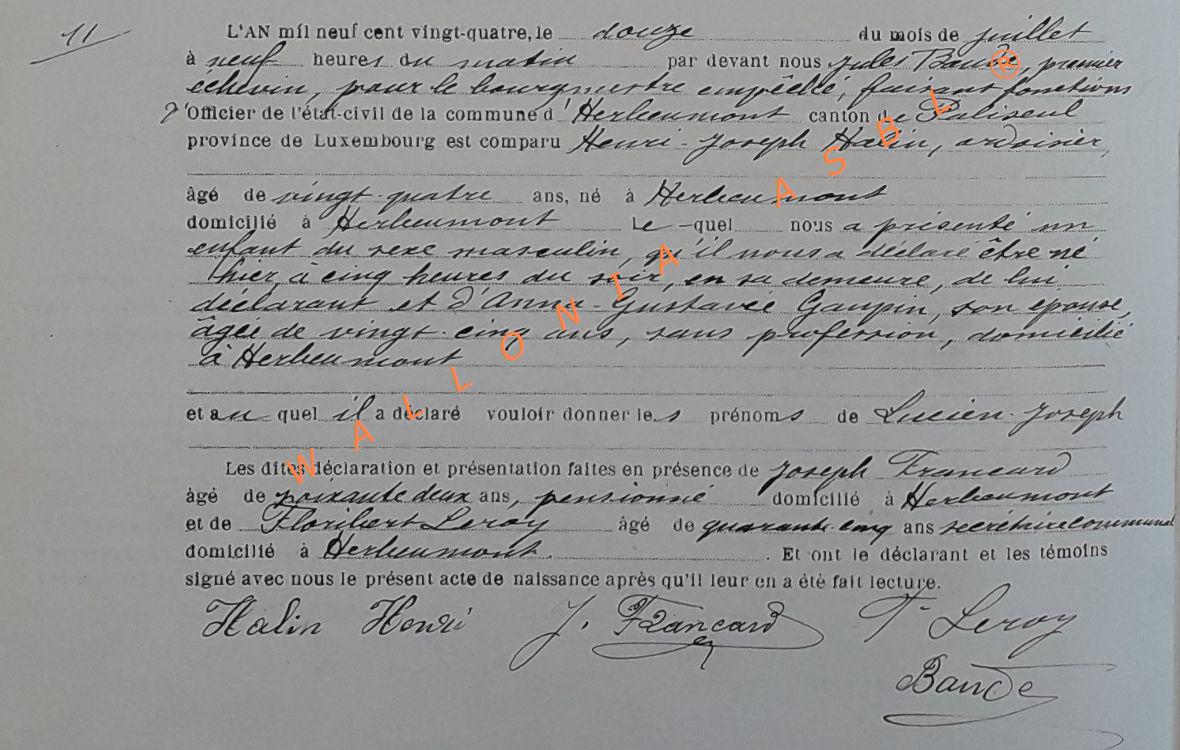 11
L'AN mil neuf cent vingt-quatre, le douze du mois de juillet
à neuf heures du matin par devant nous Jules Baude, premier
échevin, pour le bourgmestre empêché, faisant fonctions
d'Officier de l'état-civil de la commune d'Herbeumont canton de Paliseul
province de Luxembourg est comparu Henri-Joseph Halin, ardoisier,
âgé de vingt-quatre ans, né à Herbeumont
domicilié à Herbeumont le-quel nous a présenté un
enfant du sexe masculin, qu'il nous a déclaré être né
hier, à cinq heures du soir, en sa demeure, de lui
déclarant et d'Anna-Gustavee Gaupin, son épouse,
agée de vingt-cinq ans, sans profession, domicilié
à Herbeumont
et au quel il a déclaré vouloir donner les prénoms de Lucien-Joseph
Les dites déclaration et présentation faites en présence de Joseph Francard
âgé de soixante deux ans, pensionné domicilié à Herbeumont
et de Floribert Leroy âgé de quarante-cinq ans secrétaire communal
domicilié à Herbeumont. Et ont le déclarant et les témoins
signé avec nous le présent acte de naissance après qu'il leur en a été fait lecture.
Halin Henri J. Francard F Leroy
Baude
WALLONIA ASBL ®